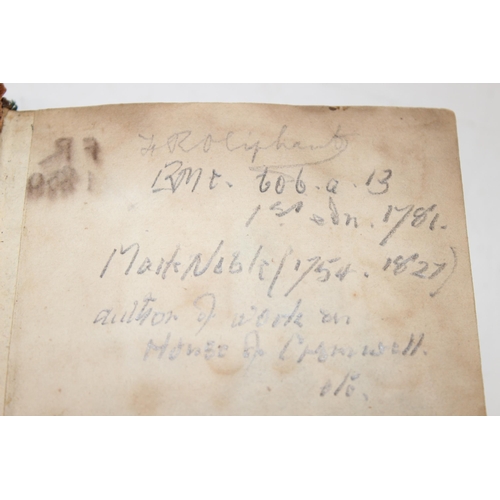 F R Oliphant
B.M. C. 606. a. 13
1st edn. 1781.
Mark Noble (1754 - 1827)
author of work on
House of Cromwell.
etc.
F R